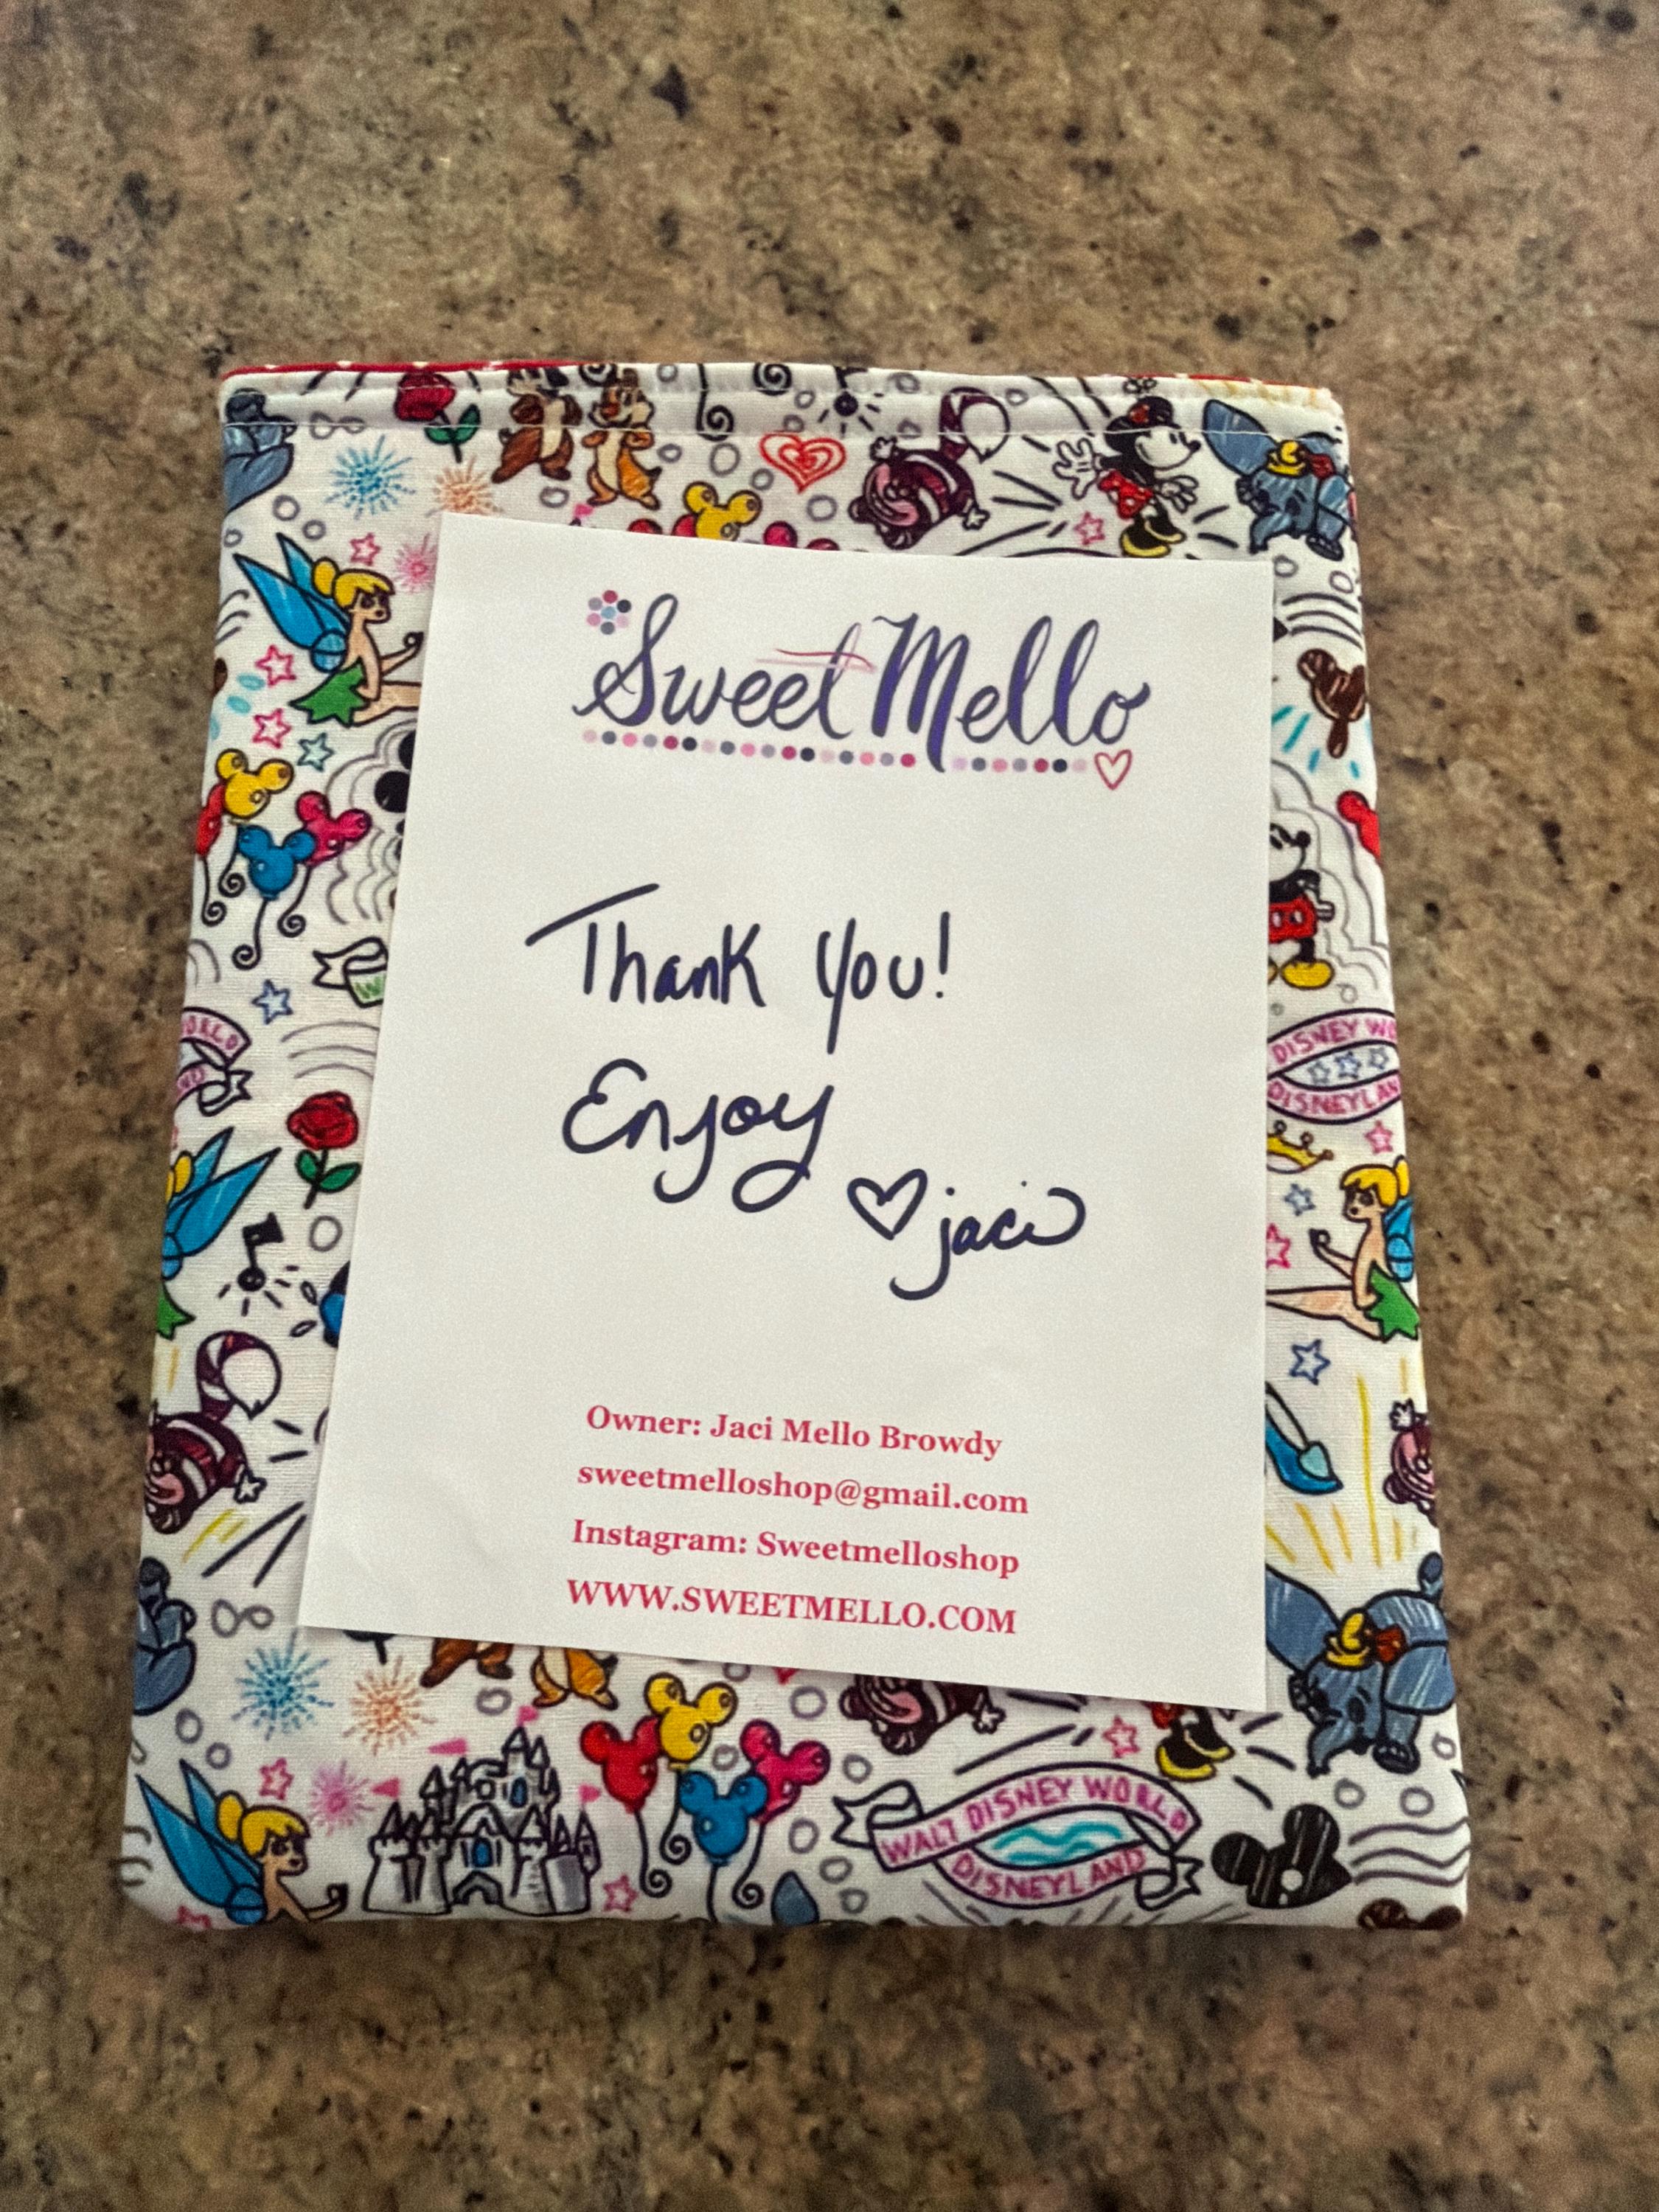 Sweet Mello
Thank you!
Enjoy
jaci
Owner: Jaci Mello Browdy
sweetmelloshop@gmail.com
Instagram: Sweetmelloshop
WWW.SWEETMELLO.COM
ORLD
DISNEY WO
DISNEYLAN
WALT DISNEY WORLD
DISNEYLAND